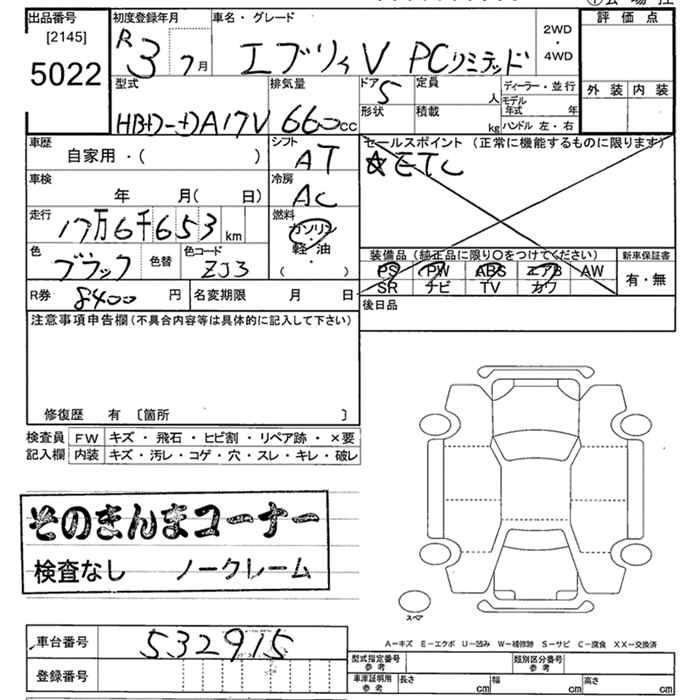 出品番号 初度登録年月 車名・グレード 評価点
[2145] R3 7月 エブリィV PCリミテッド 2WD・4WD
5022
型式 排気量 ドア 定員 ディーラー・並行 外装 内装
5 人 モデル年式 年
HBD-DA17V 660cc 形状 積載 kg ハンドル 左・右
車歴 シフト セールスポイント (正常に機能するものに限ります)
自家用・( ) AT ☆ETC
車検 冷房
年 月( 日) AC
走行 燃料
17万6千653km ガソリン・軽油・( )
色 色替 色コード 装備品 (純正品に限り○をつけてください) 新車保証書
ブラック ZJ3 PS PW ABS エアB AW 有・無
SR ナビ TV カワ
R券 8400円 名変期限 月 日
後日品
注意事項申告欄 (不具合内容等は具体的に記入して下さい)
修復歴 有 〔箇所 〕
検査員 FW キズ・飛石・ヒビ割・リペア跡・×要
記入欄 内装 キズ・汚レ・コゲ・穴・スレ・キレ・破レ
そのまんまコーナー
検査なし ノークレーム
スペア
A－キズ E－エクボ U－凹み W－補修跡 S－サビ C－腐食 XX－交換済
車台番号 532915
型式指定番号 参考 類別区分番号 参考
登録番号
車庫証明用 参考 長さ cm 幅 cm 高さ cm